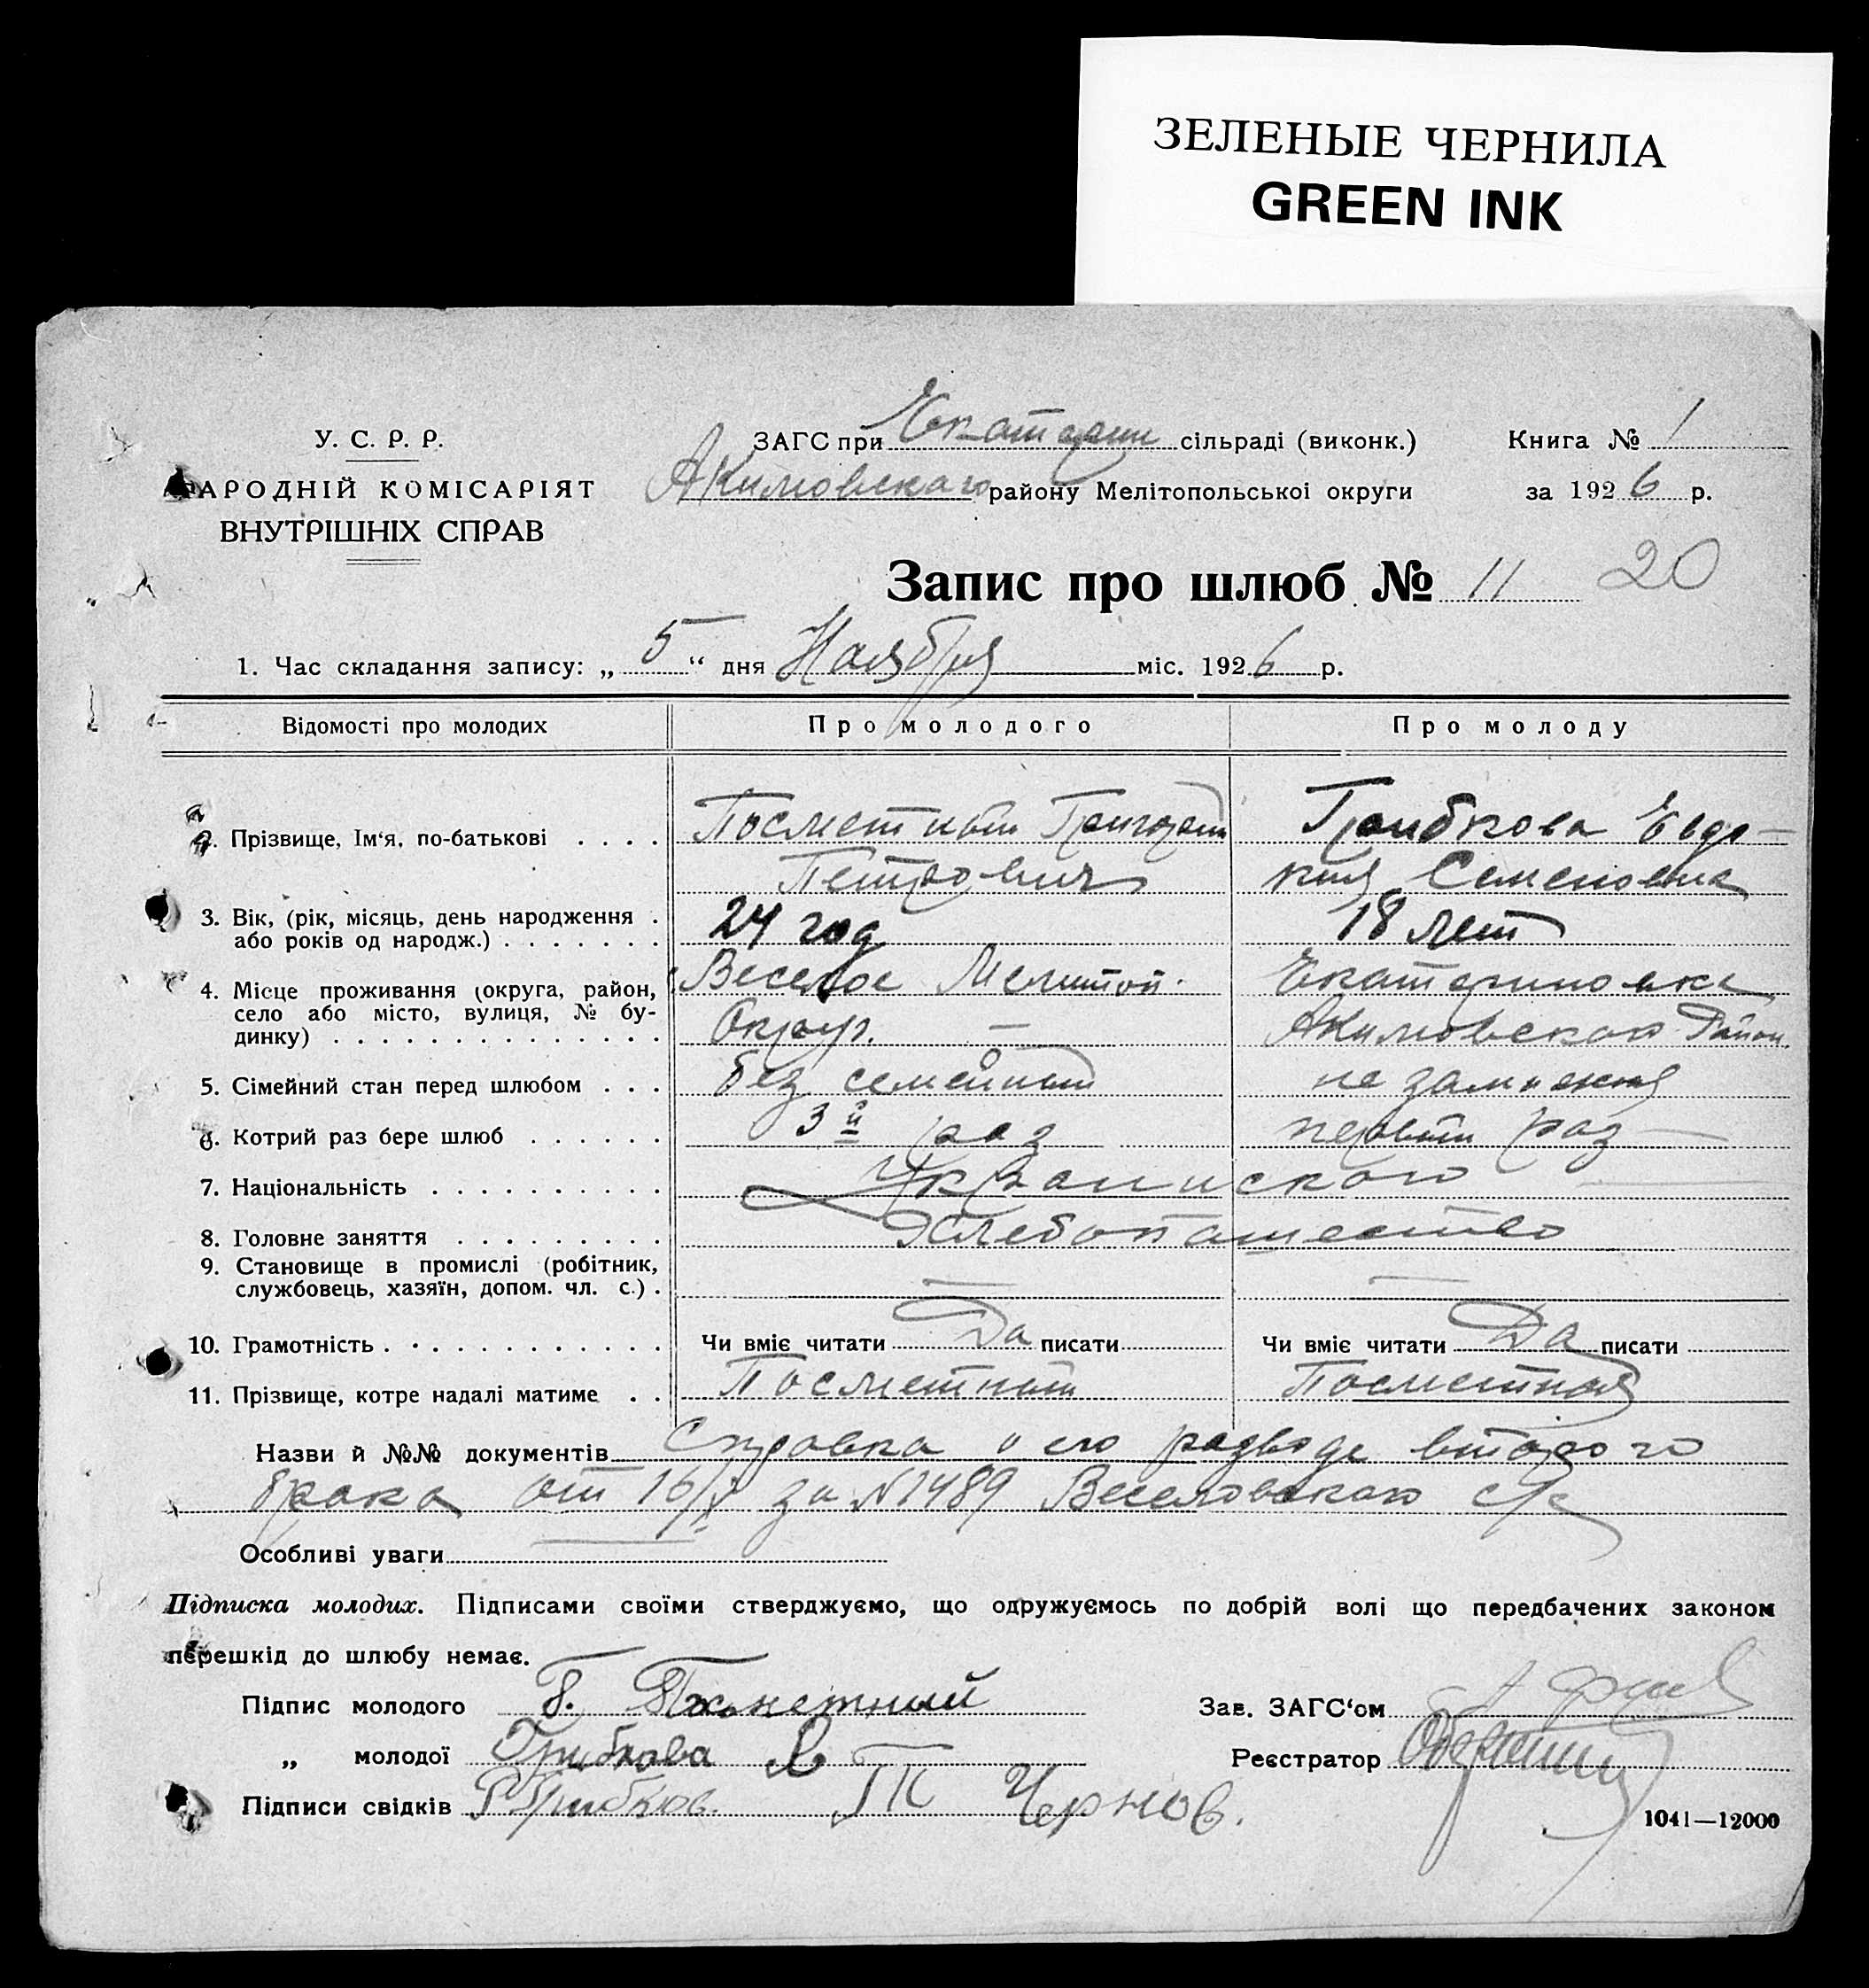 ЗЕЛЕНЫЕ ЧЕРНИЛА
GREEN INK
У. С. Р. Р.
НАРОДНІЙ КОМІСАРІЯТ
ВНУТРІШНІХ СПРАВ
ЗАГС при Екатерин сільраді (виконк.)
Акимовского району Мелітопольськоі округи
Книга № 1
за 1926 р.
Запис про шлюб № 11 20
1. Час складання запису: „ 5 “ дня Ноября міс. 1926 р.
Відомості про молодих Про молодого Про молоду
2. Прізвище, Ім‘я, по-батькові . . . . Посметный Григорий Грибкова Евдо-
Петрович кия Семеновна
3. Вік, (рік, місяць, день народження . 24 год 18 лет
або років од народж.) . . . . . . .
4. Місце проживання (округа, район, Веселое Мелитоп. Екатериновка
село або місто, вулиця, № бу- Округ. — Акимовского Район.
динку) . . . . . . . . . . . . . .
5. Сімейний стан перед шлюбом . . . без семейный не замужняя
6. Котрий раз бере шлюб . . . . . . 3й раз первый раз
7. Національність . . . . . . . . . . Украинского
8. Головне заняття . . . . . . . . . Хлебопашество
9. Становище в промислі (робітник,
службовець, хазяїн, допом. чл. с.) . — —
10. Грамотність . . . . . . . . . . . . Чи вміє читати Да писати Чи вміє читати Да писати
11. Прізвище, котре надалі матиме . . Посметный Посметная
Назви й №№ документів Справка о его разводе второго
брака от 16/X за №1489 Веселовского с/с
Особливі уваги
Підписка молодих. Підписами своїми стверджуємо, що одружуємось по добрій волі що передбачених законом
перешкід до шлюбу немає.
Підпис молодого Г.
Зав. ЗАГС‘ом
„ молодої Грибкова
Реєстратор
Підписи свідків Грибков. Чернов.
1041—12000